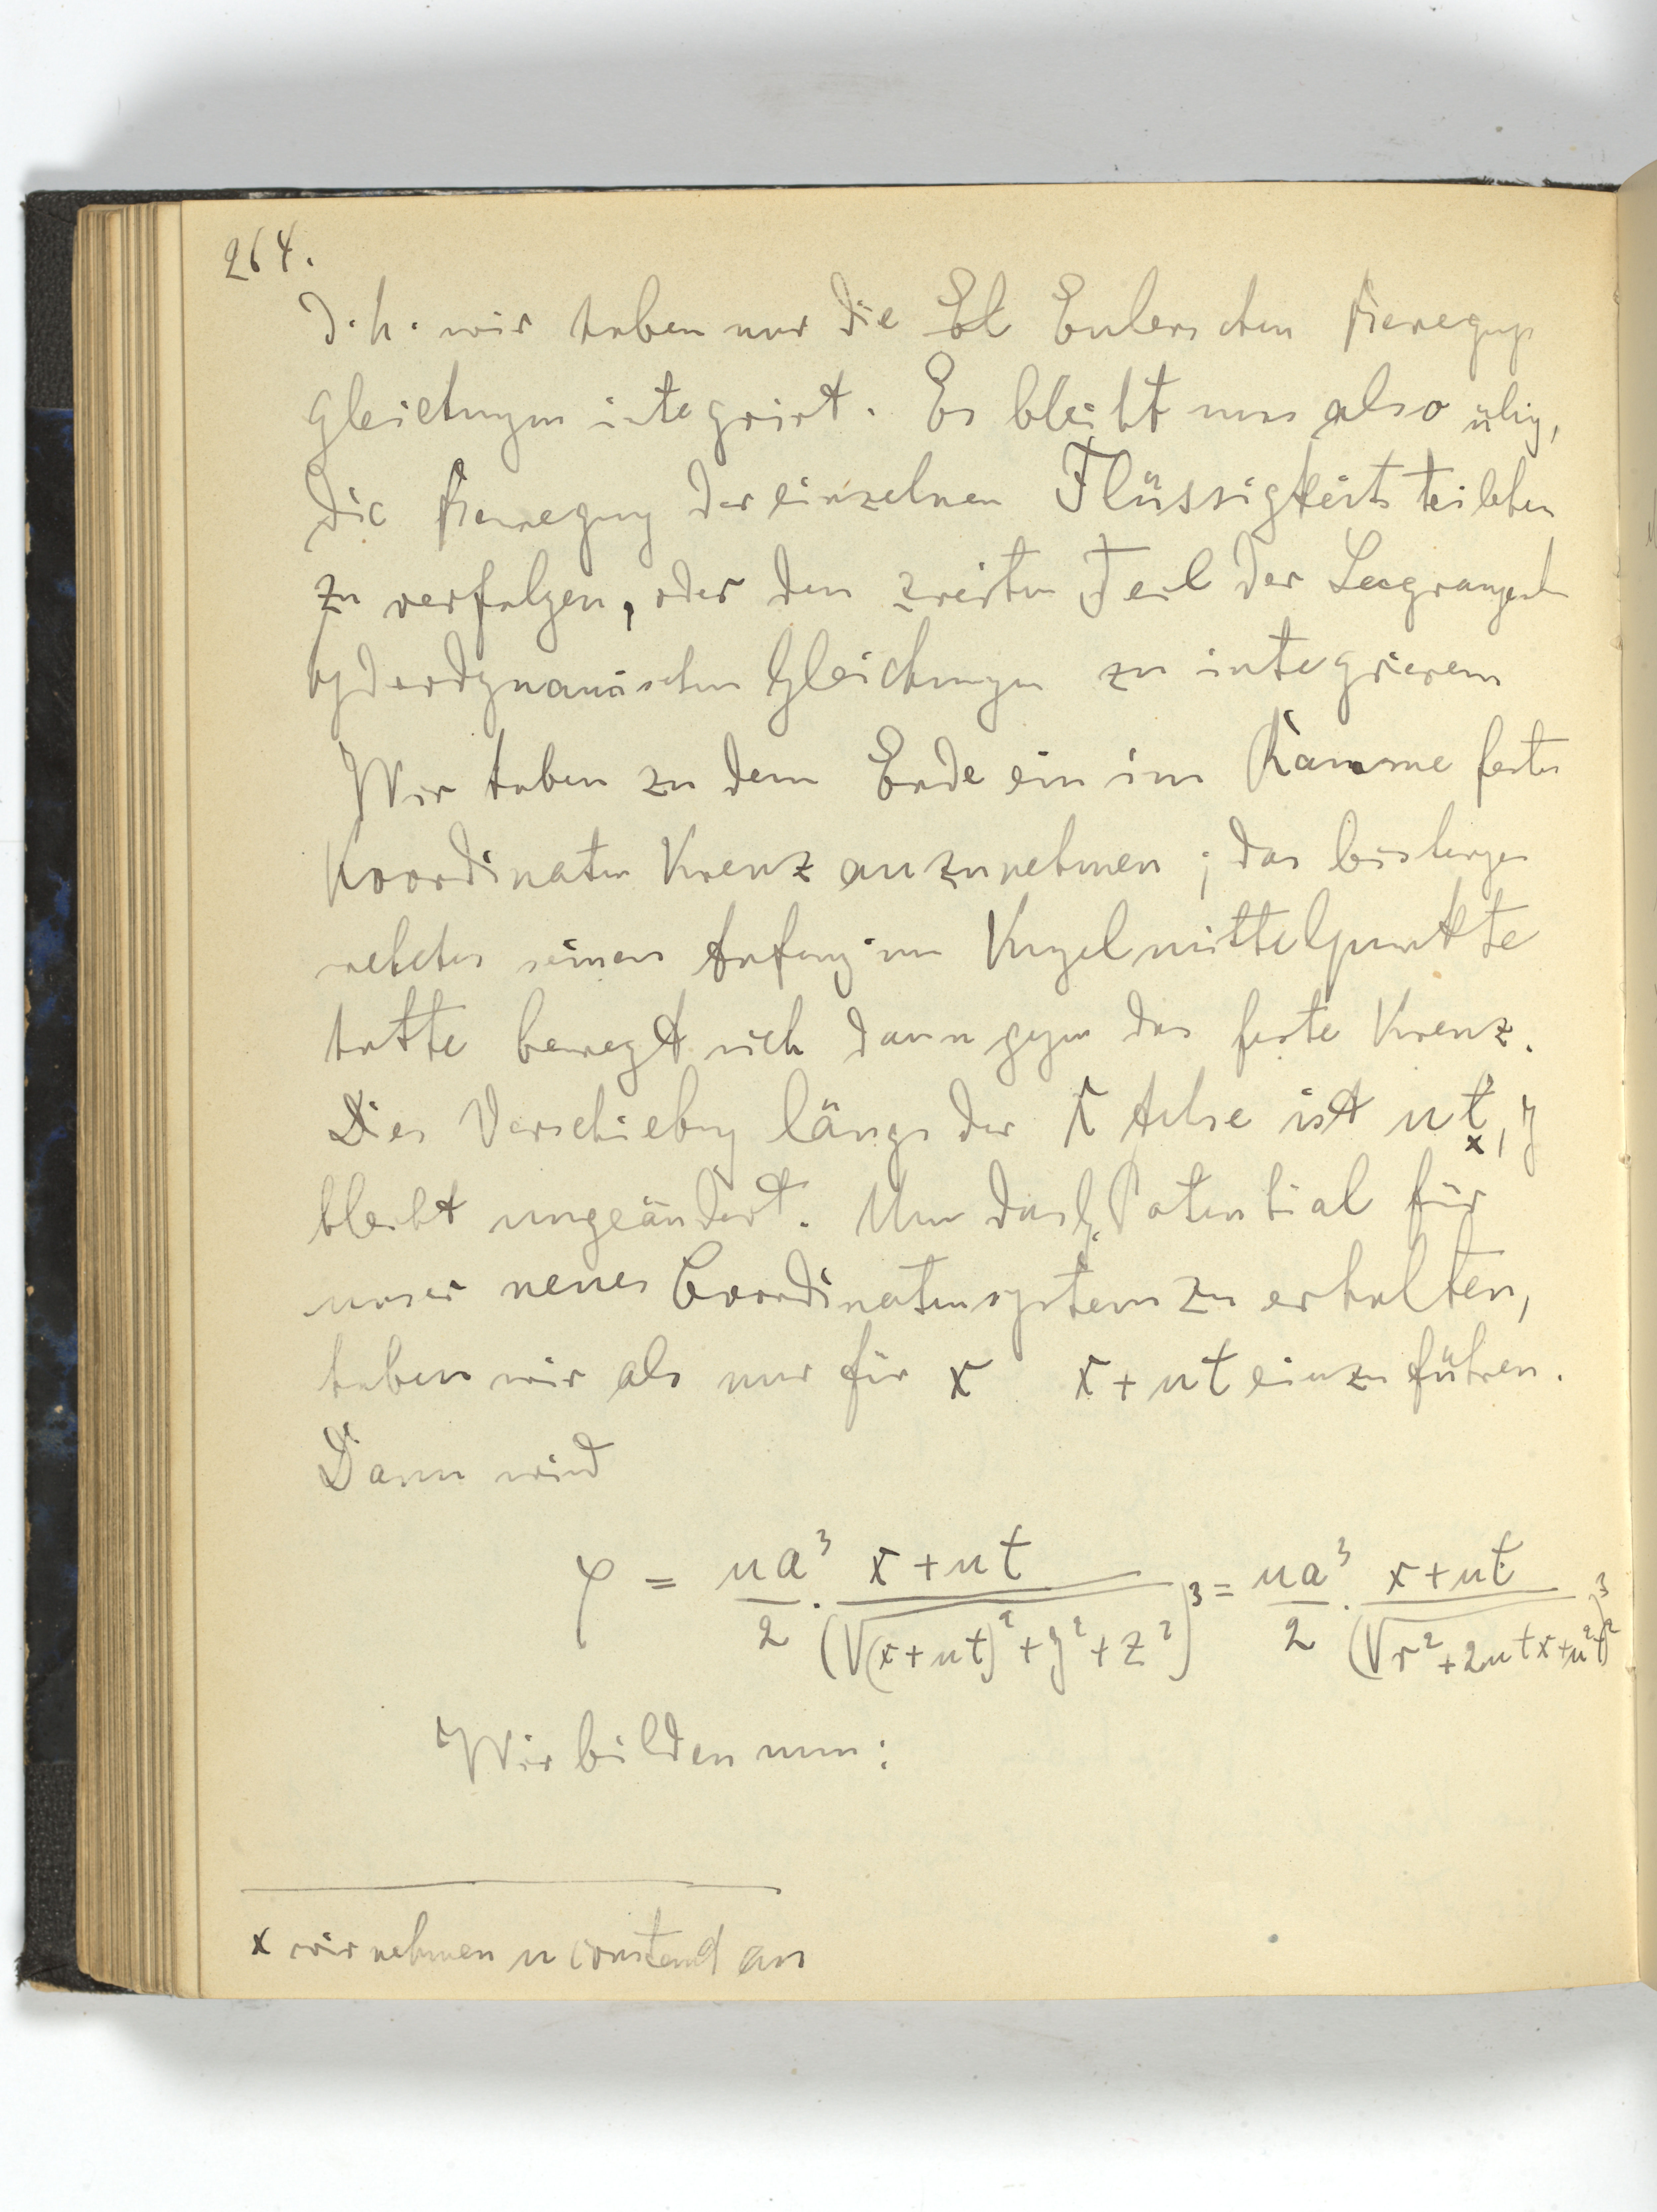 264.
D. h. wir haben nur die El Eulerschen Bewegungs
gleichungen integrirt. Es bleibt uns also übrig,
die Bewegung der einzelnen Flüssigkeitsteilchen
zu verfolgen, oder den zweiten Teil der Lagrangeschen
hyderdynamischen Gleichungen zu integrieren
Wir haben zu dem Ende ein im Raume festes
Koordinaten Kreuz anzunehmen; das bisherige
welches seinen Anfang im Kugelmittelpunkte
hatte bewegt sich dann gegen das feste Kreuz.
Die Verschiebung längs der x Achse ist ut, y
x
bleibt ungeändert. Um das Potential für
unser neues Coordinatensystem zu erhalten,
haben wir als nur für x x + ut einzuführen.
Dann wird
φ = ua³/2 · (x + ut)/(√((x + ut)² + y² + z²))³ = ua³/2 · (x + ut)/(√(r² + 2utx + u²t²))³
Wir bilden nun:
x wir nehmen u constand an